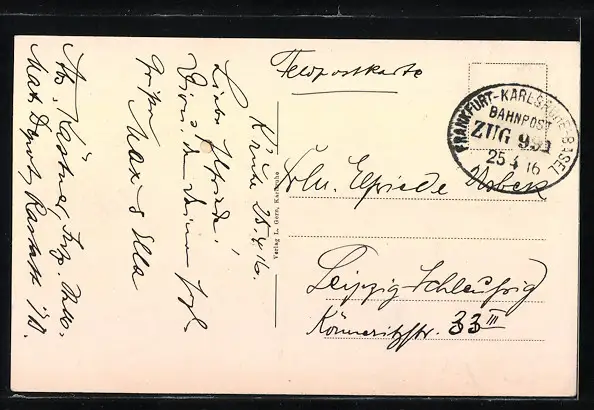 Feldpostkarte
FRANKFURT-KARLSRUHE-BASEL
BAHNPOST
ZUG
25 4 16
Frln. Elfriede
Leipzig-Schleußig
Könneritzstr. 33 III
Verlag L. Gers, Karlsruhe
K'ruhe 25.4.16.
Liebe Elfriede!
Dir u. den Deinen
Grüße
Max & Ella
Kästner,
Max Rastatt i/B.